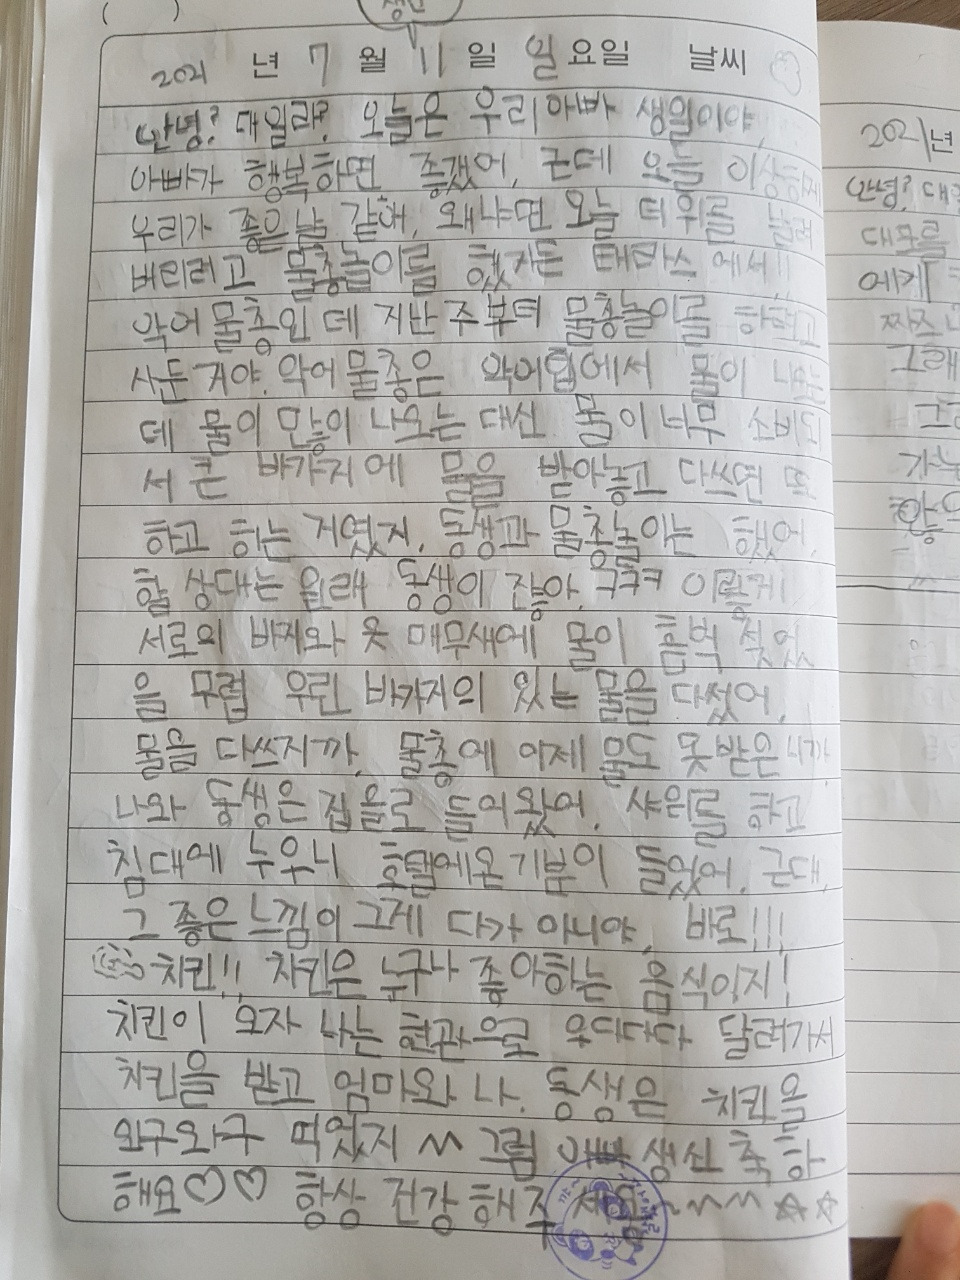 ( ) 생일
2021 년 7 월 11 일 일 요일 날씨
안녕? 대일라? 오늘은 우리 아빠 생일이야,
아빠가 행복하면 좋갰어, 근데 오늘 이상하께
우리가 좋은날 같애, 왜냐면 오늘 더위를 날려
버리려고 물총놀이를 했거든 테라스 에서!!
악어 물총인 데 지난 주부터 물총놀이를 하려고
사둔 거야. 악어물총은 악어입에서 물이 나오는
데 물이 만이 나오는 대신 물이 너무 소비되
서 큰 바가지에 물을 받아놓고 다쓰면 또
하고 하는 거였지. 동생과 물총놀이는 했어,
할 상대는 원래 동생이 잖아. ㅋㅋㅋ 이렇게
서로의 바지와 옷 매무새에 물이 흠벅 젖었
을 무렵 우린 바가지의 있는 물을 다썼어,
물을 다쓰지까, 물총에 이제 물도 못받은니까
나와 동생은 집을로 들어왔어. 샤워를 하고
침대에 누우니 호텔에온 기분이 들었어. 근대,
그 좋은 느낌이 그게 다가 아니야, 바로!!!
치킨!!, 치킨은 누구나 좋아하는 음식이지!
치킨이 오자 나는 현관으로 우다다다 달려가서
치킨을 받고 엄마와 나. 동생은 치킨을
와구와구 먹었지 ^^ 그럼 아빠 생신 축 하
해요♡♡ 항상 건강 해 주세요~~~ ☆☆
2021년
안녕? 대
대무를
에게
그래